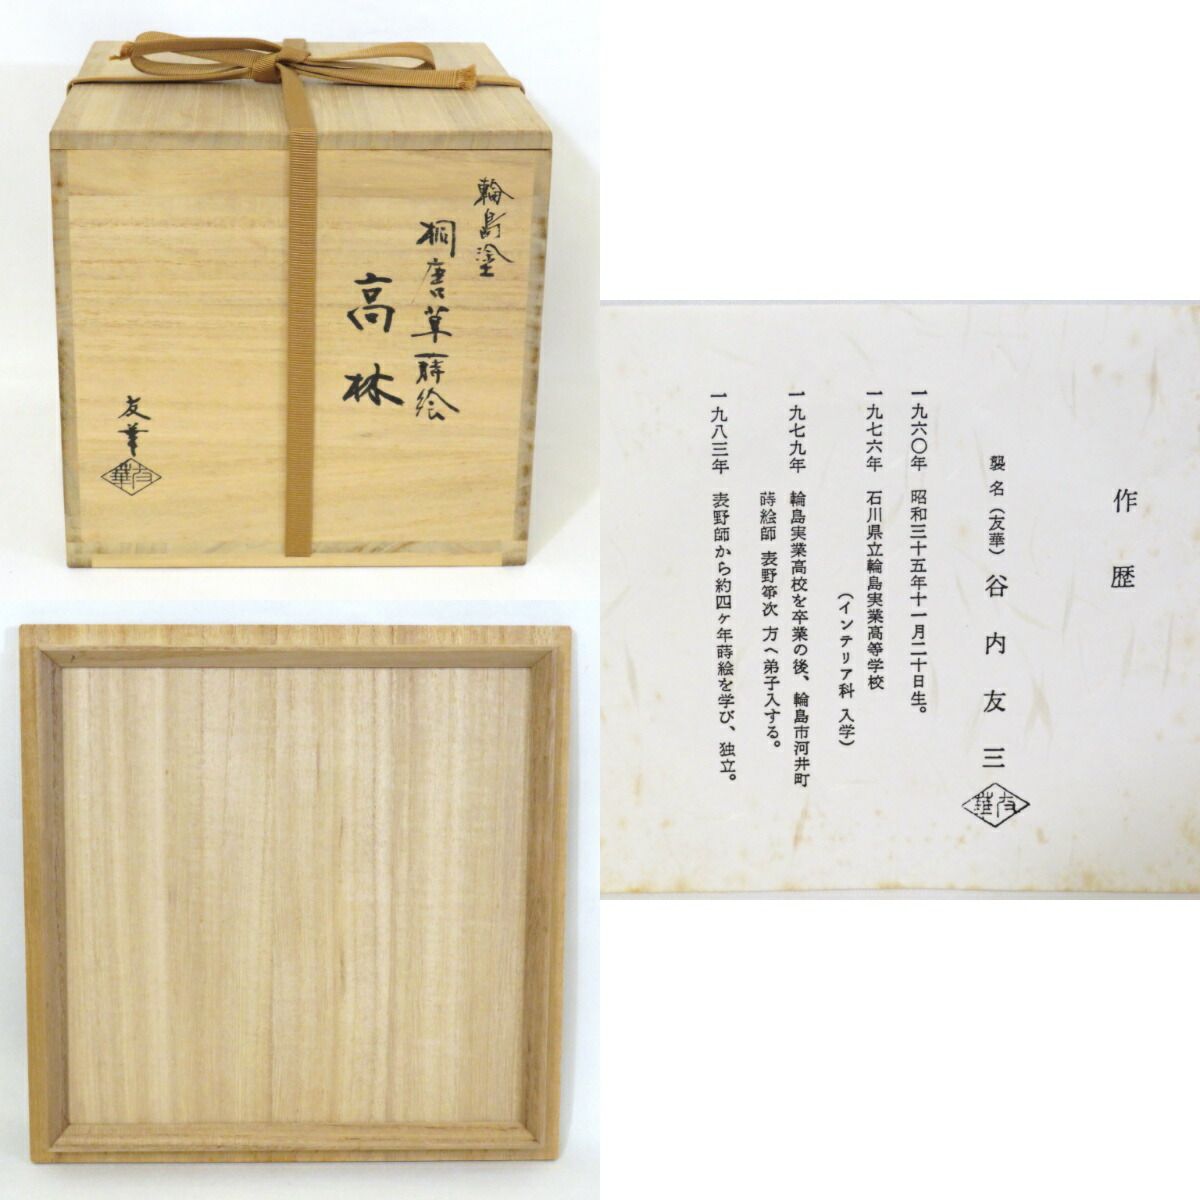 輪島塗
桐唐草蒔絵
高林
友華
友華
作歴
襲名（友華）谷内友三
友華
一九六〇年 昭和三十五年十一月二十日生。
一九七六年 石川県立輪島実業高等学校
（インテリア科 入学）
一九七九年 輪島実業高校を卒業の後、輪島市河井町
蒔絵師 表野笻次 方へ弟子入する。
一九八三年 表野師から約四ヶ年蒔絵を学び、独立。